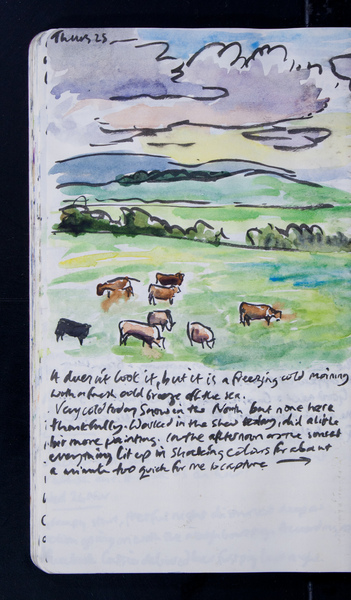 Thurs 25 —
It doesn't look it, but it is a freezing cold morning
with a fresh cold breeze off the sea.
Very cold today Snow in the North but none here
thankfully. Worked in the shed today, did a little
bit more painting. In the afternoon at the sunset
everything lit up in shocking colours for about
a minute too quick for me to capture →